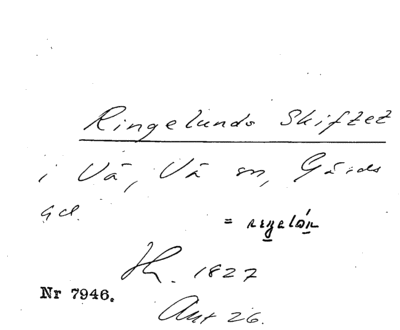 Ringelunds Skiftet
i Vä, Vä sn, Gärds
hd.
Hh. 1827
Nr 7946.
Akt 26.